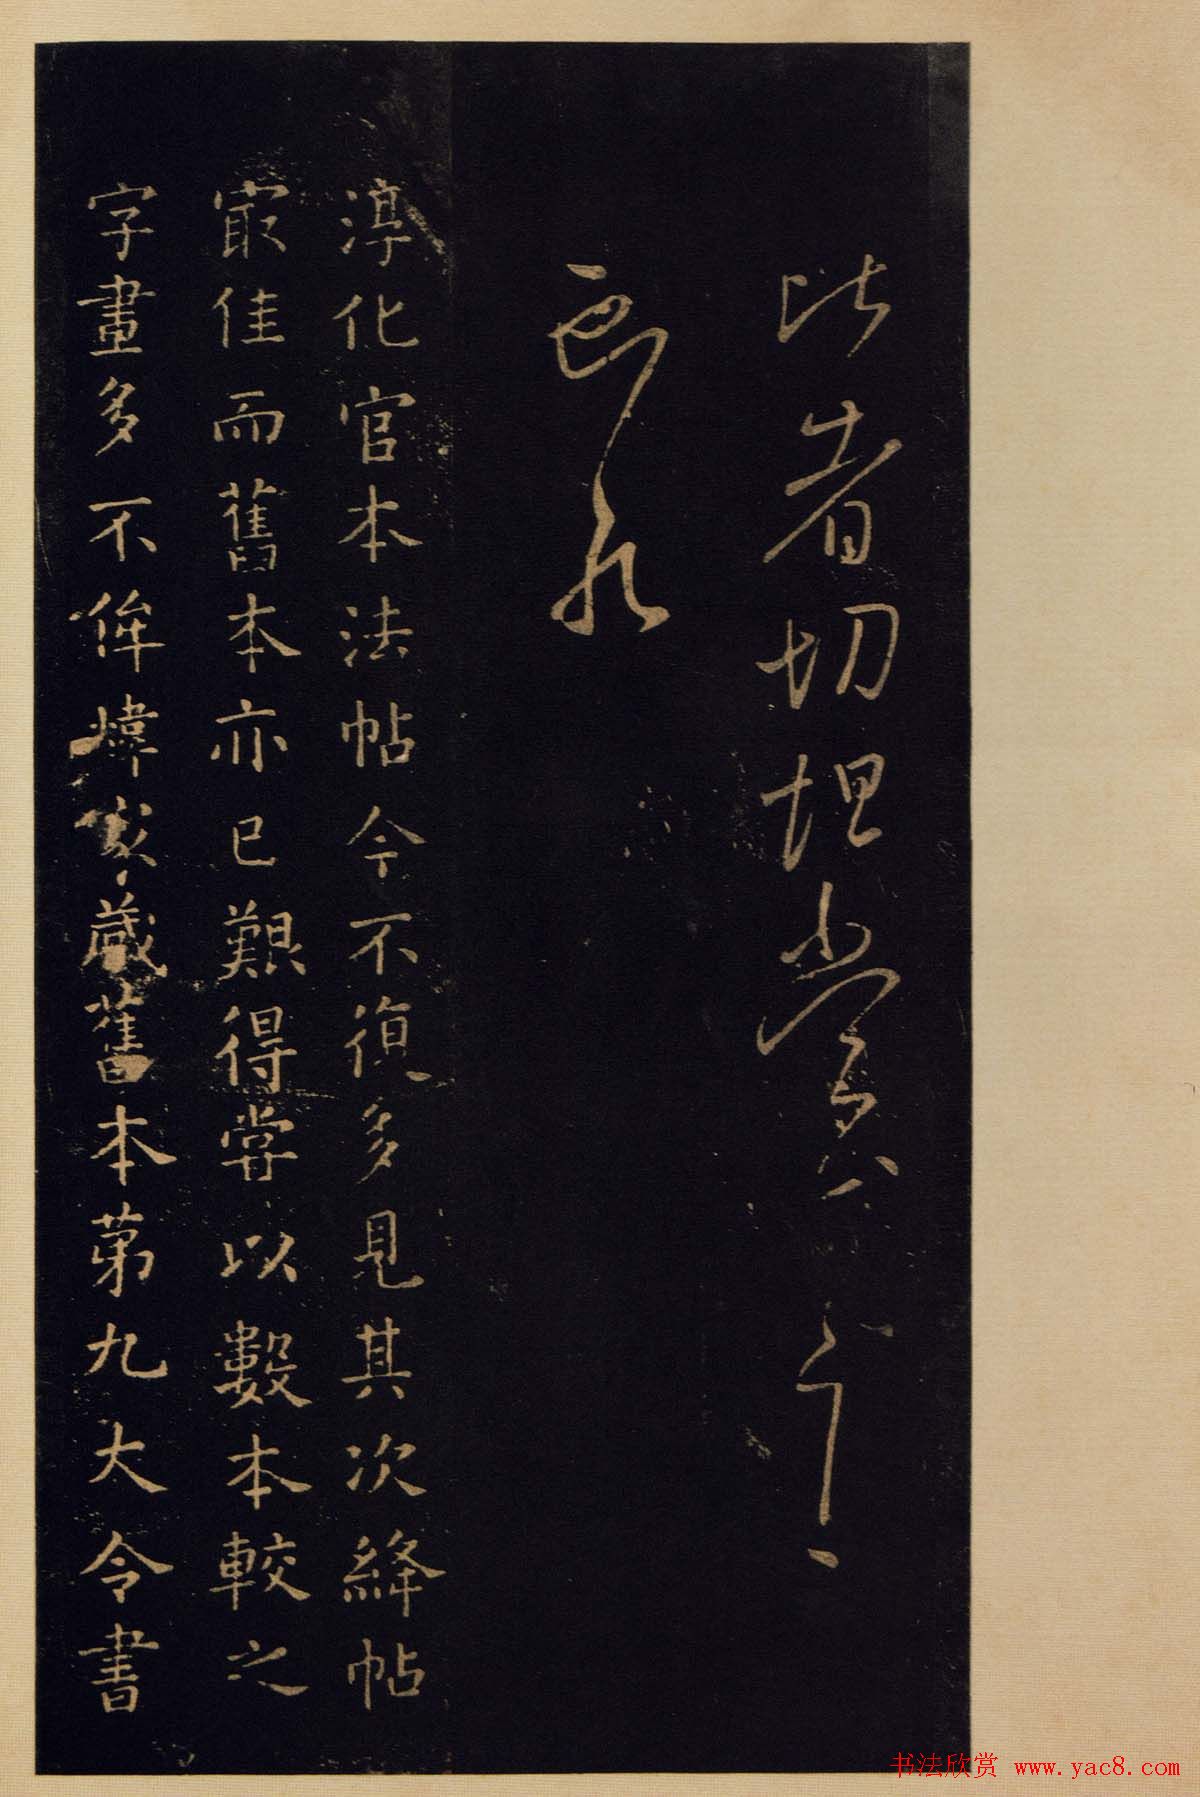 比者切坦
淳化官本法帖今不復多見其次絳帖
㝡佳而舊本亦已艱得嘗以數本較之
字畫多不侔煒家藏舊本苐九大令書
书法欣赏 www.yac8.com